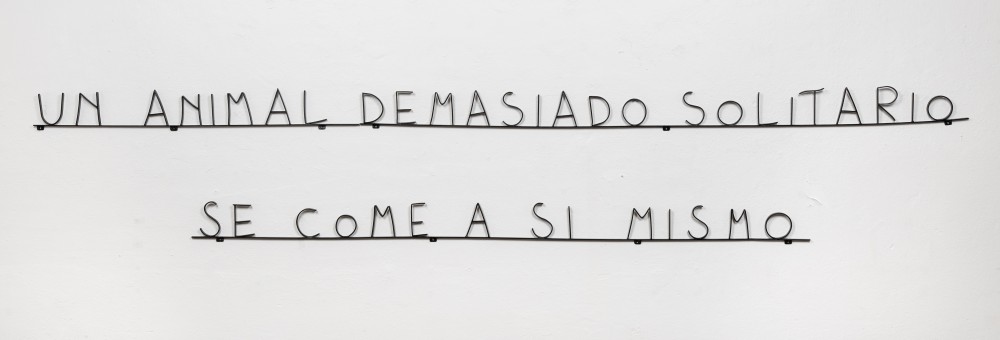 UN ANIMAL DEMASIADO SOLITARIO
SE COME A SI MISMO